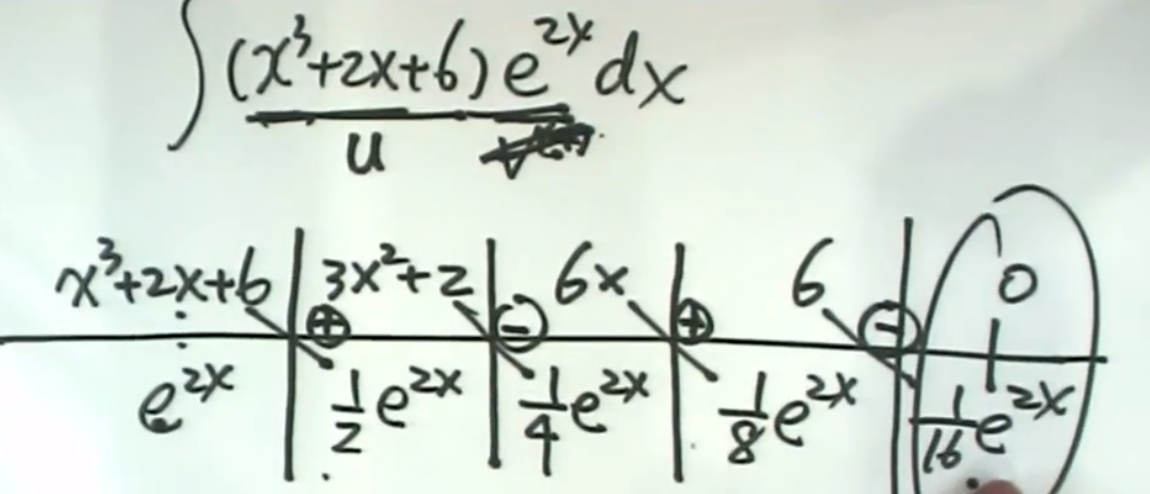 ∫(x³+2x+6)e²ˣdx
u
x³+2x+6 | 3x²+2 | 6x | 6 | 0
⊕ ⊖ ⊕ ⊖
e²ˣ | 1/2 e²ˣ | 1/4 e²ˣ | 1/8 e²ˣ | 1/16 e²ˣ